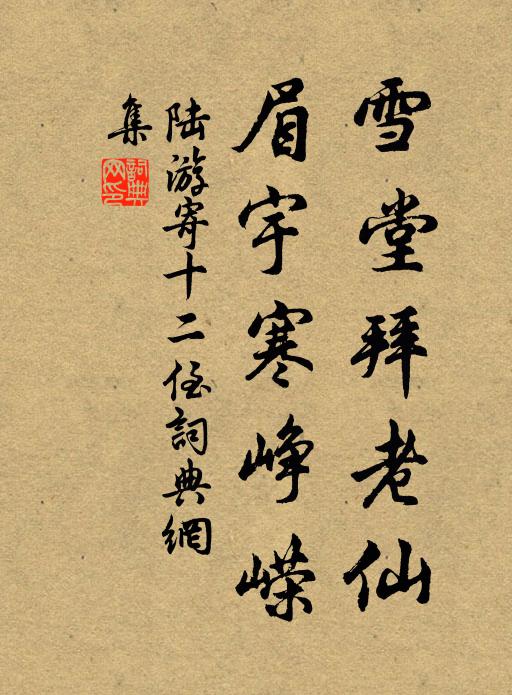 雪堂拜老仙
眉宇寒峥嵘
陆游寄十二侄詞典網
集
詞典
网印